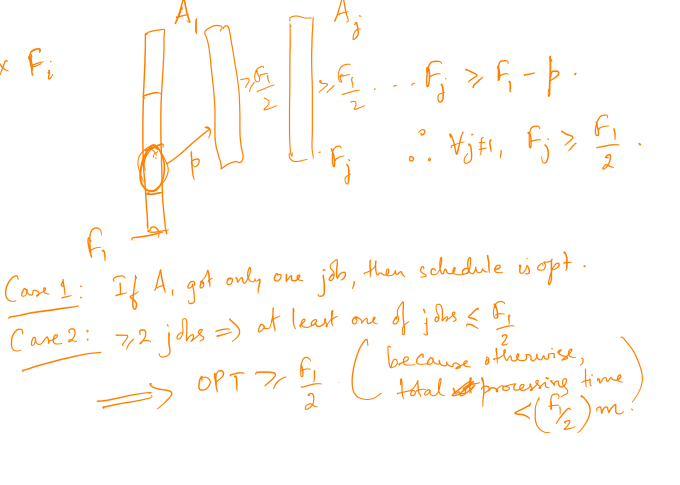 A₁ A_j
x F_i
≥ F₁/2 ≥ F₁/2 ... F_j ≥ F₁ - p.
p F_j ∴ ∀j≠1, F_j ≥ F₁/2.
F₁
Case 1: If A, got only one job, then schedule is opt.
Case 2: ≥2 jobs => at least one of jobs ≤ F₁/2
⟹ OPT ≥ F₁/2. (because otherwise,
total processing time
<(F₁/2)m.)